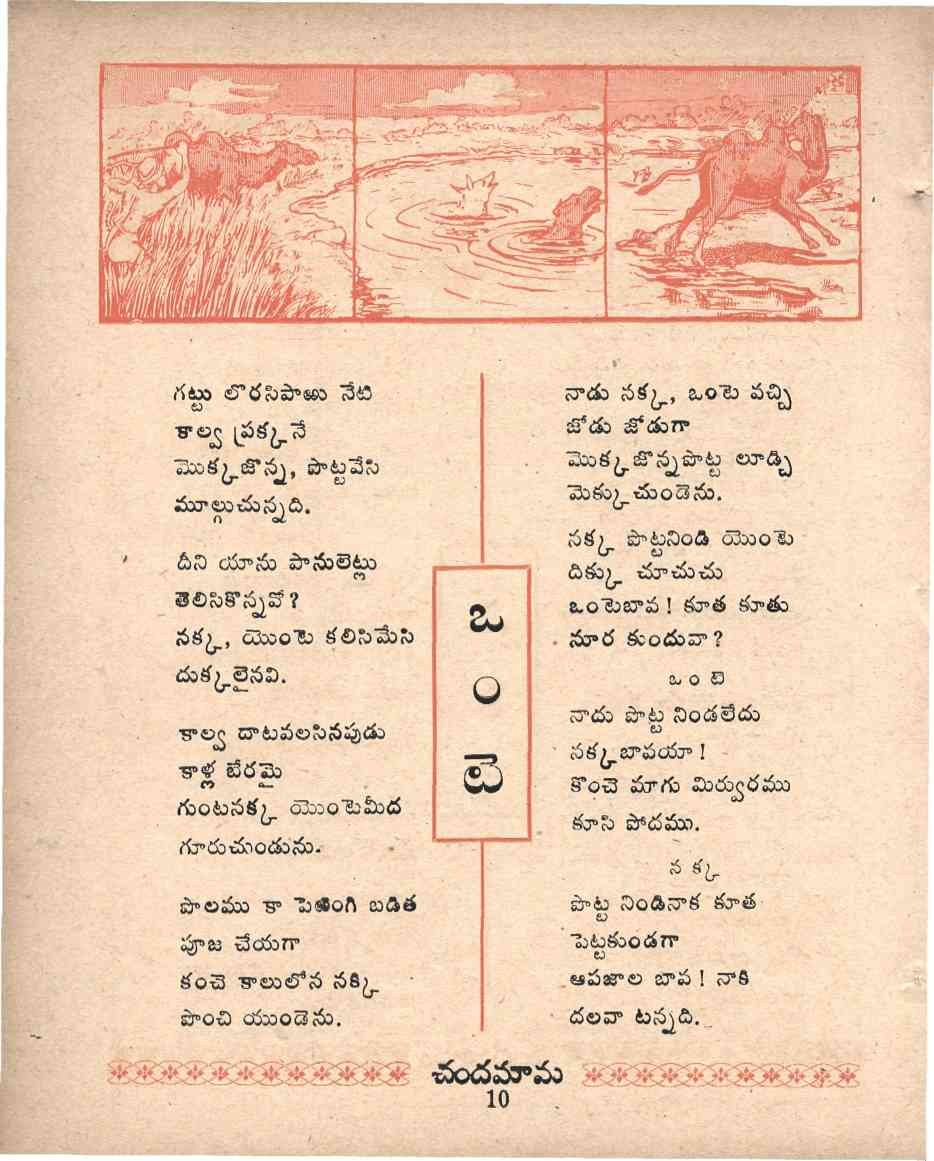 గట్టు లొరసిపాఱు నేటి
కాల్వ ప్రక్కనే
మొక్కజొన్న, పొట్టవేసి
మూల్గుచున్నది.
దీని యాను పానులెట్లు
తెలిసికొన్నవో?
నక్క, యొంటె కలిసిమేసి
దుక్కలైనవి.
కాల్వ దాటవలసినపుడు
కాళ్ల బేరమై
గుంటనక్క యొంటెమీద
గూరుచుండును.
పొలము కా పెఱింగి బడిత
పూజ చేయగా
కంచె కాలులోన నక్కి
పొంచి యుండెను.
ఒంటె
నాడు నక్క, ఒంటె వచ్చి
జోడు జోడుగా
మొక్కజొన్నపొట్ట లూడ్చి
మెక్కుచుండెను.
నక్క పొట్టనిండి యొంటె
దిక్కు చూచుచు
ఒంటెబావ! కూత కూతు
నూర కుందువా?
ఒంటె
నాదు పొట్ట నిండలేదు
నక్కబావయా!
కొంచె మాగు మిర్వురము
కూసి పోదము.
నక్క
పొట్ట నిండినాక కూత
పెట్టకుండగా
ఆపజాల బావ! నాకి
దలవా టన్నది.
చందమామ
10